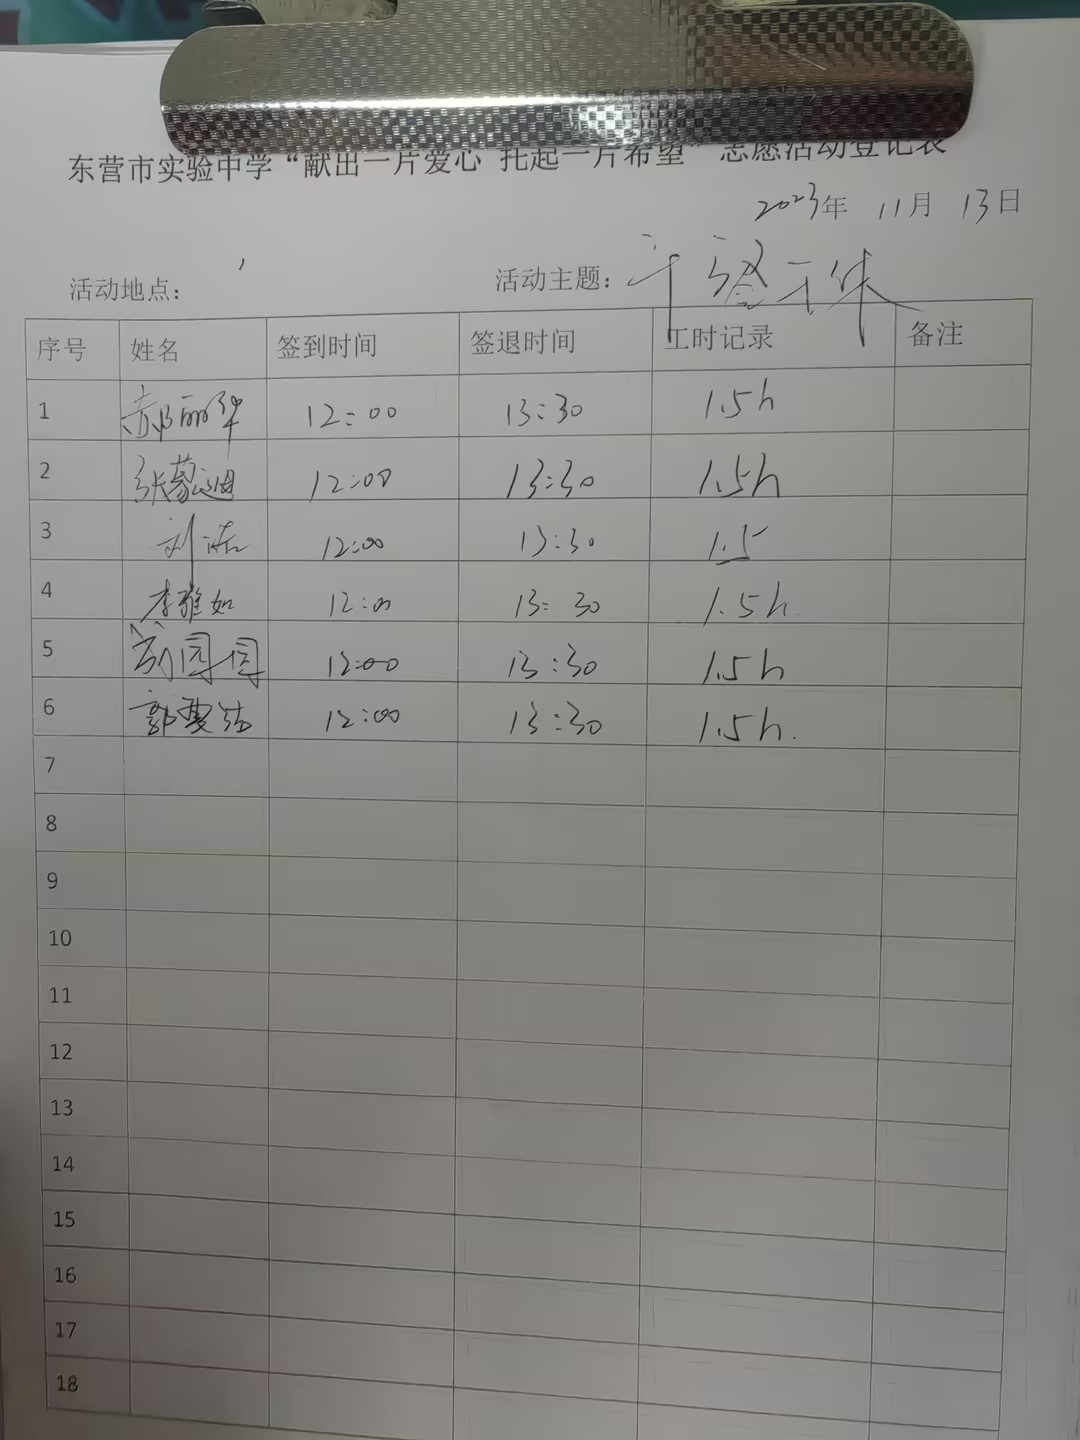 东营市实验中学“献出一片爱心 托起一片希望”志愿活动登记表
2023年 11月 13日
活动地点： 活动主题：
序号 姓名 签到时间 签退时间 工时记录 备注
1 郝丽华 12:00 13:30 1.5h
2 张蒙迪 12:00 13:30 1.5h
3 刘洁 12:00 13:30 1.5
4 李雅如 12:00 13:30 1.5h.
5 园园 12:00 13:30 1.5h
6 郭 12:00 13:30 1.5h.
7
8
9
10
11
12
13
14
15
16
17
18